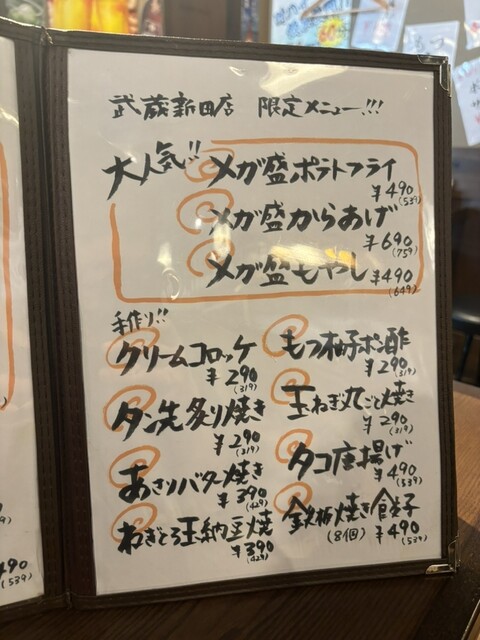 武蔵新田店 限定メニュー!!!
大人気!! メガ盛ポテトフライ
¥490
(539)
メガ盛からあげ
¥690
(759)
メガ盛もやし ¥490
(649)
手作り!!
クリームコロッケ
¥290
(319)
タン先炙り焼き
¥290
(319)
あさりバター焼き
¥390
(429)
ねぎとろ玉納豆焼
¥390
(429)
もつ柚子ポン酢
¥290
(319)
玉ねぎ丸ごと焼き
¥290
(319)
タコ唐揚げ
¥490
(539)
鉄板焼き餃子
(8個) ¥490
(539)
490
(539)